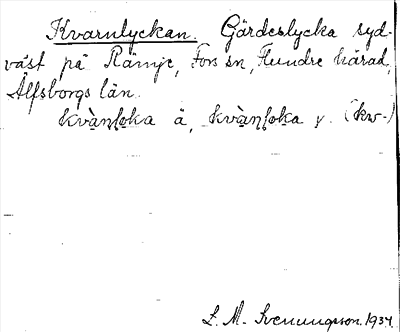 Kvarnlyckan. Gärdeslycka syd-
väst på Rämje, Fors sn, Flundre härad,
Älfsborgs län.
kvànḷoka ä, kvànḷoka y. (kw-)
L. M. Svenungsson. 1934.